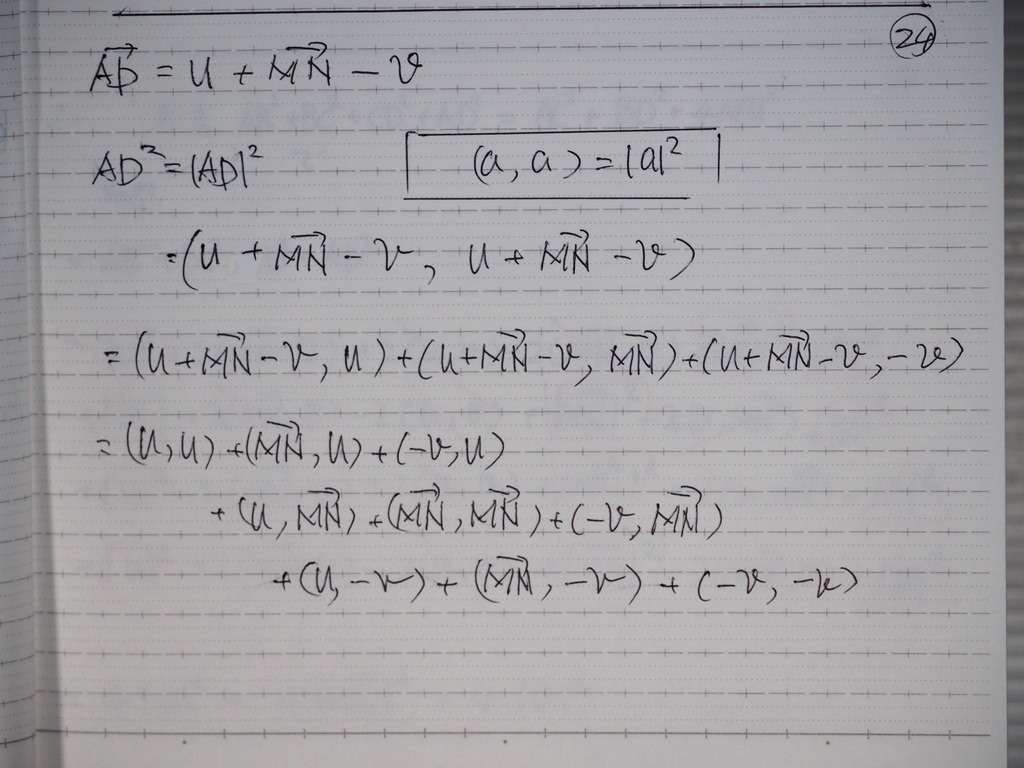 24
$\overrightarrow{AD} = u + \overrightarrow{MN} - v$
$AD^2 = |AD|^2$ $(a, a) = |a|^2$
$= (u + \overrightarrow{MN} - v, u + \overrightarrow{MN} - v)$
$= (u + \overrightarrow{MN} - v, u) + (u + \overrightarrow{MN} - v, \overrightarrow{MN}) + (u + \overrightarrow{MN} - v, -v)$
$= (u, u) + (\overrightarrow{MN}, u) + (-v, u)$
$+ (u, \overrightarrow{MN}) + (\overrightarrow{MN}, \overrightarrow{MN}) + (-v, \overrightarrow{MN})$
$+ (u, -v) + (\overrightarrow{MN}, -v) + (-v, -v)$